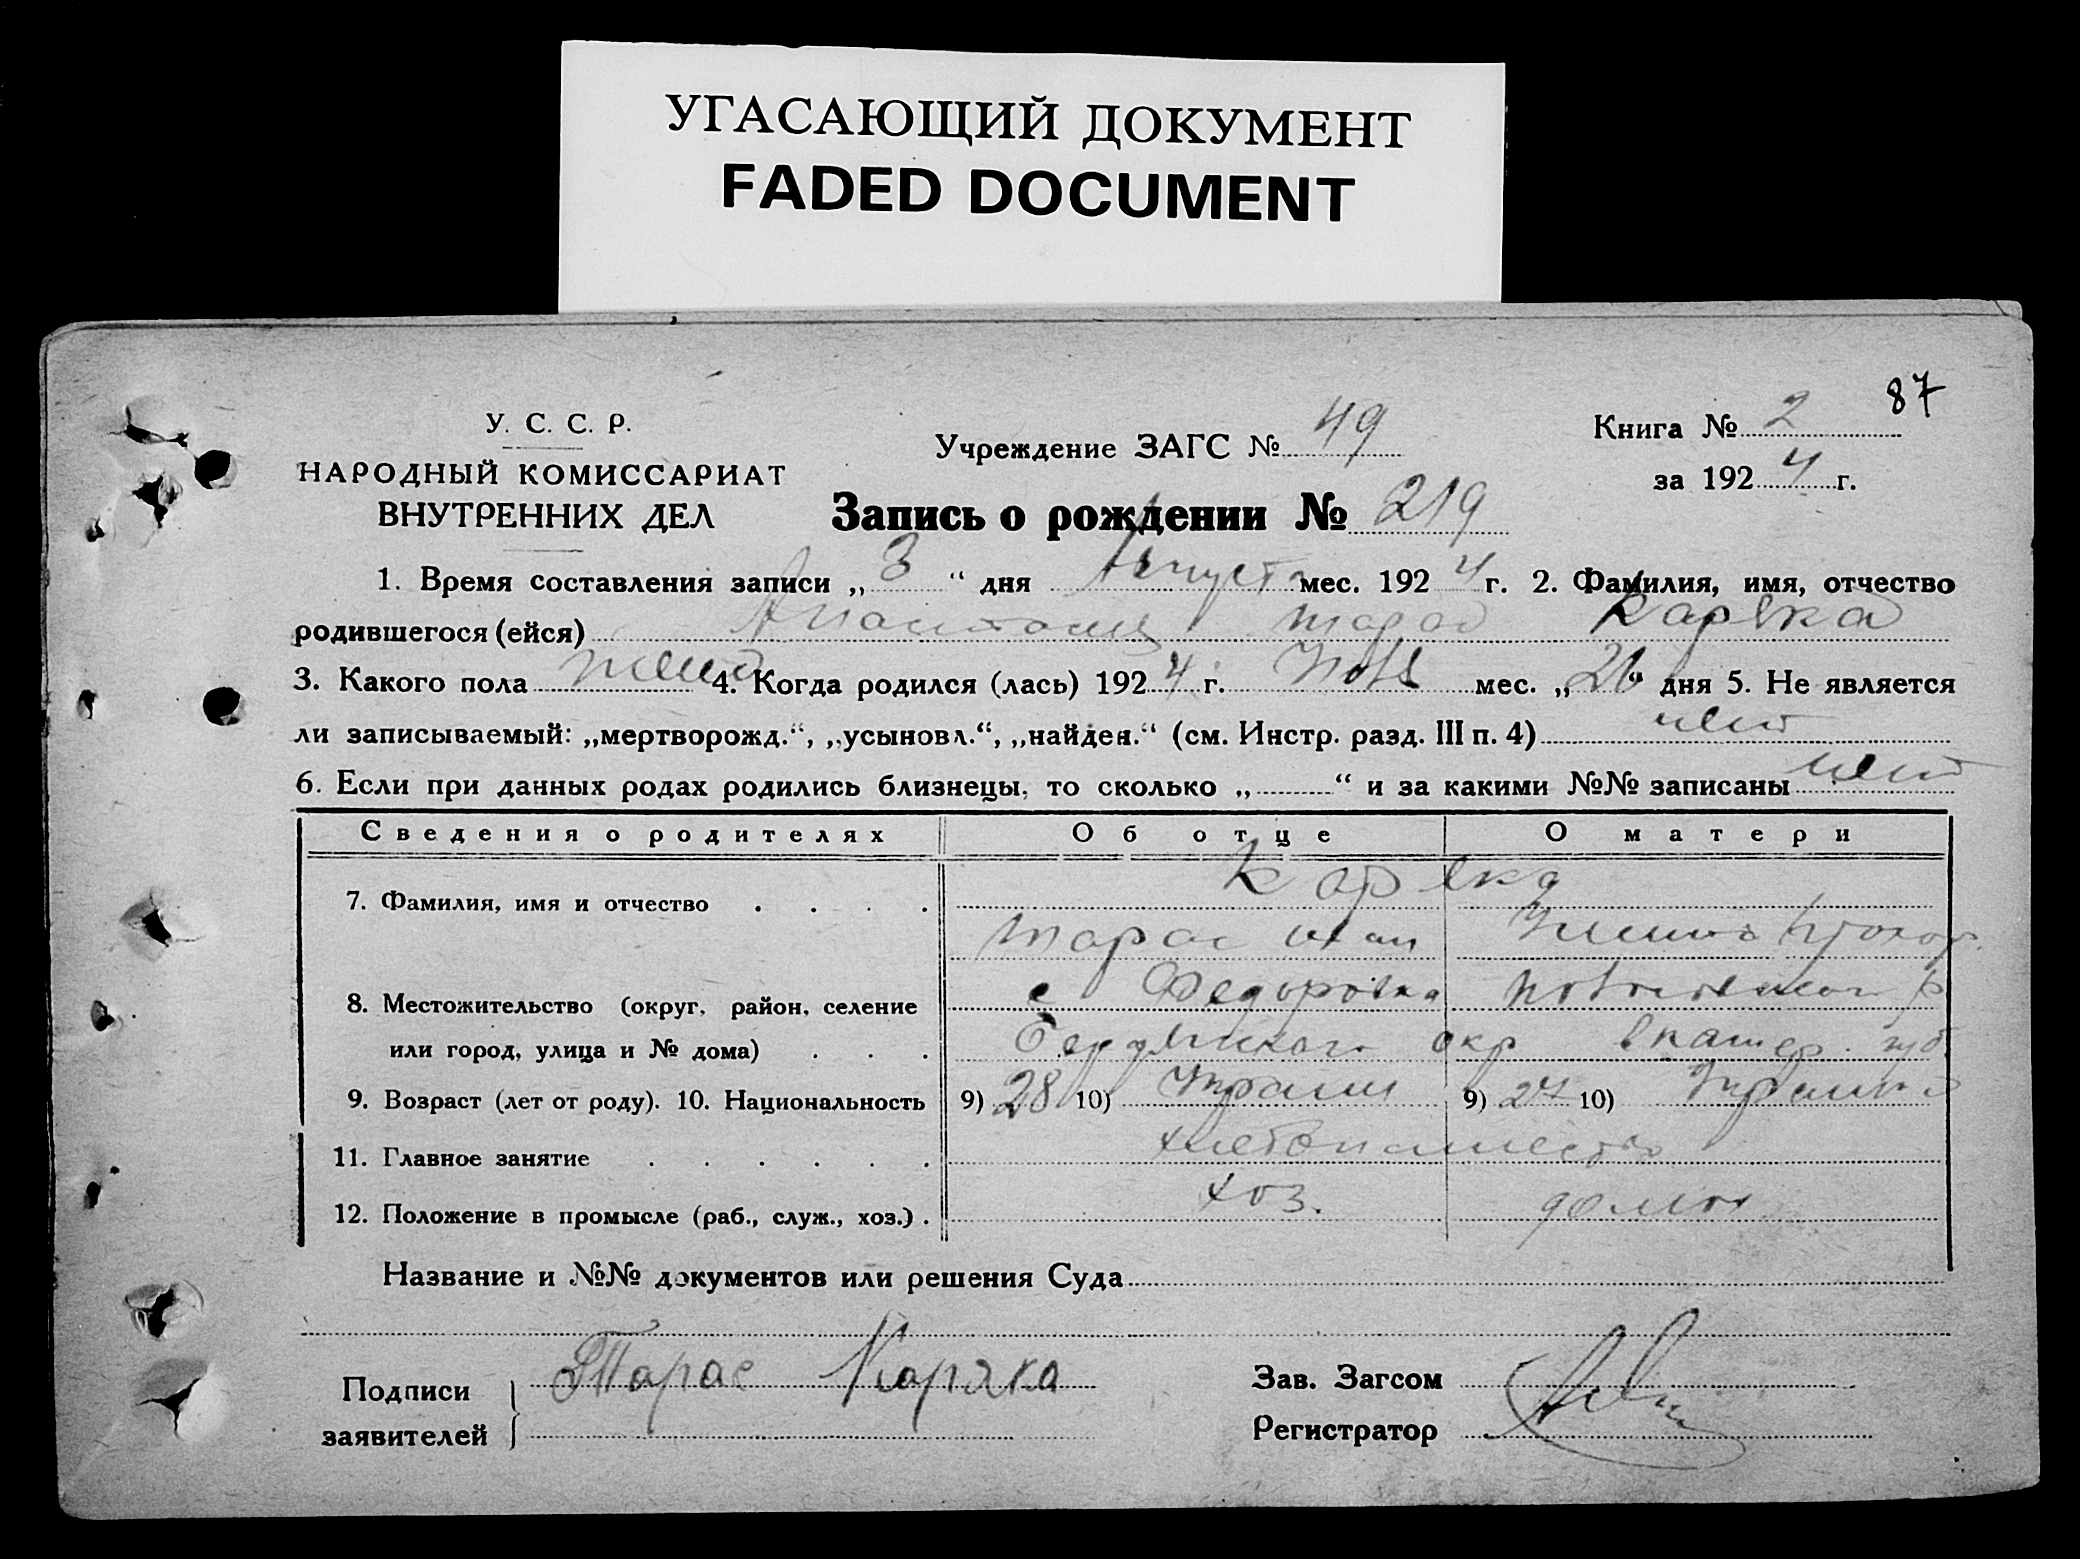 УГАСАЮЩИЙ ДОКУМЕНТ
FADED DOCUMENT
87
У. С. С. Р.
НАРОДНЫЙ КОМИССАРИАТ
ВНУТРЕННИХ ДЕЛ
Учреждение ЗАГС № 49
Книга № 2
за 1924 г.
Запись о рождении № 219
1. Время составления записи „3“ дня Августа мес. 1924 г. 2. Фамилия, имя, отчество
родившегося (ейся) Анастасия Тарас Каряка
3. Какого пола жен 4. Когда родился (лась) 1924 г. мес. „26“ дня 5. Не является
ли записываемый: „мертворожд.“, „усыновл.“, „найден.“ (см. Инстр. разд. III п. 4) нет
6. Если при данных родах родились близнецы, то сколько „ “ и за какими №№ записаны нет
Сведения о родителях Об отце О матери
7. Фамилия, имя и отчество Каряка
Тарас Прохор.
8. Местожительство (округ, район, селение с Федоровка р
или город, улица и № дома) Бердянского окр Екатер. губ.
9. Возраст (лет от роду). 10. Национальность 9) 28 10) Украин 9) 24 10) Украин
11. Главное занятие хлебопашество
12. Положение в промысле (раб., служ., хоз.) хоз. домох
Название и №№ документов или решения Суда
Подписи заявителей Тарас Каряка
Зав. Загсом
Регистратор